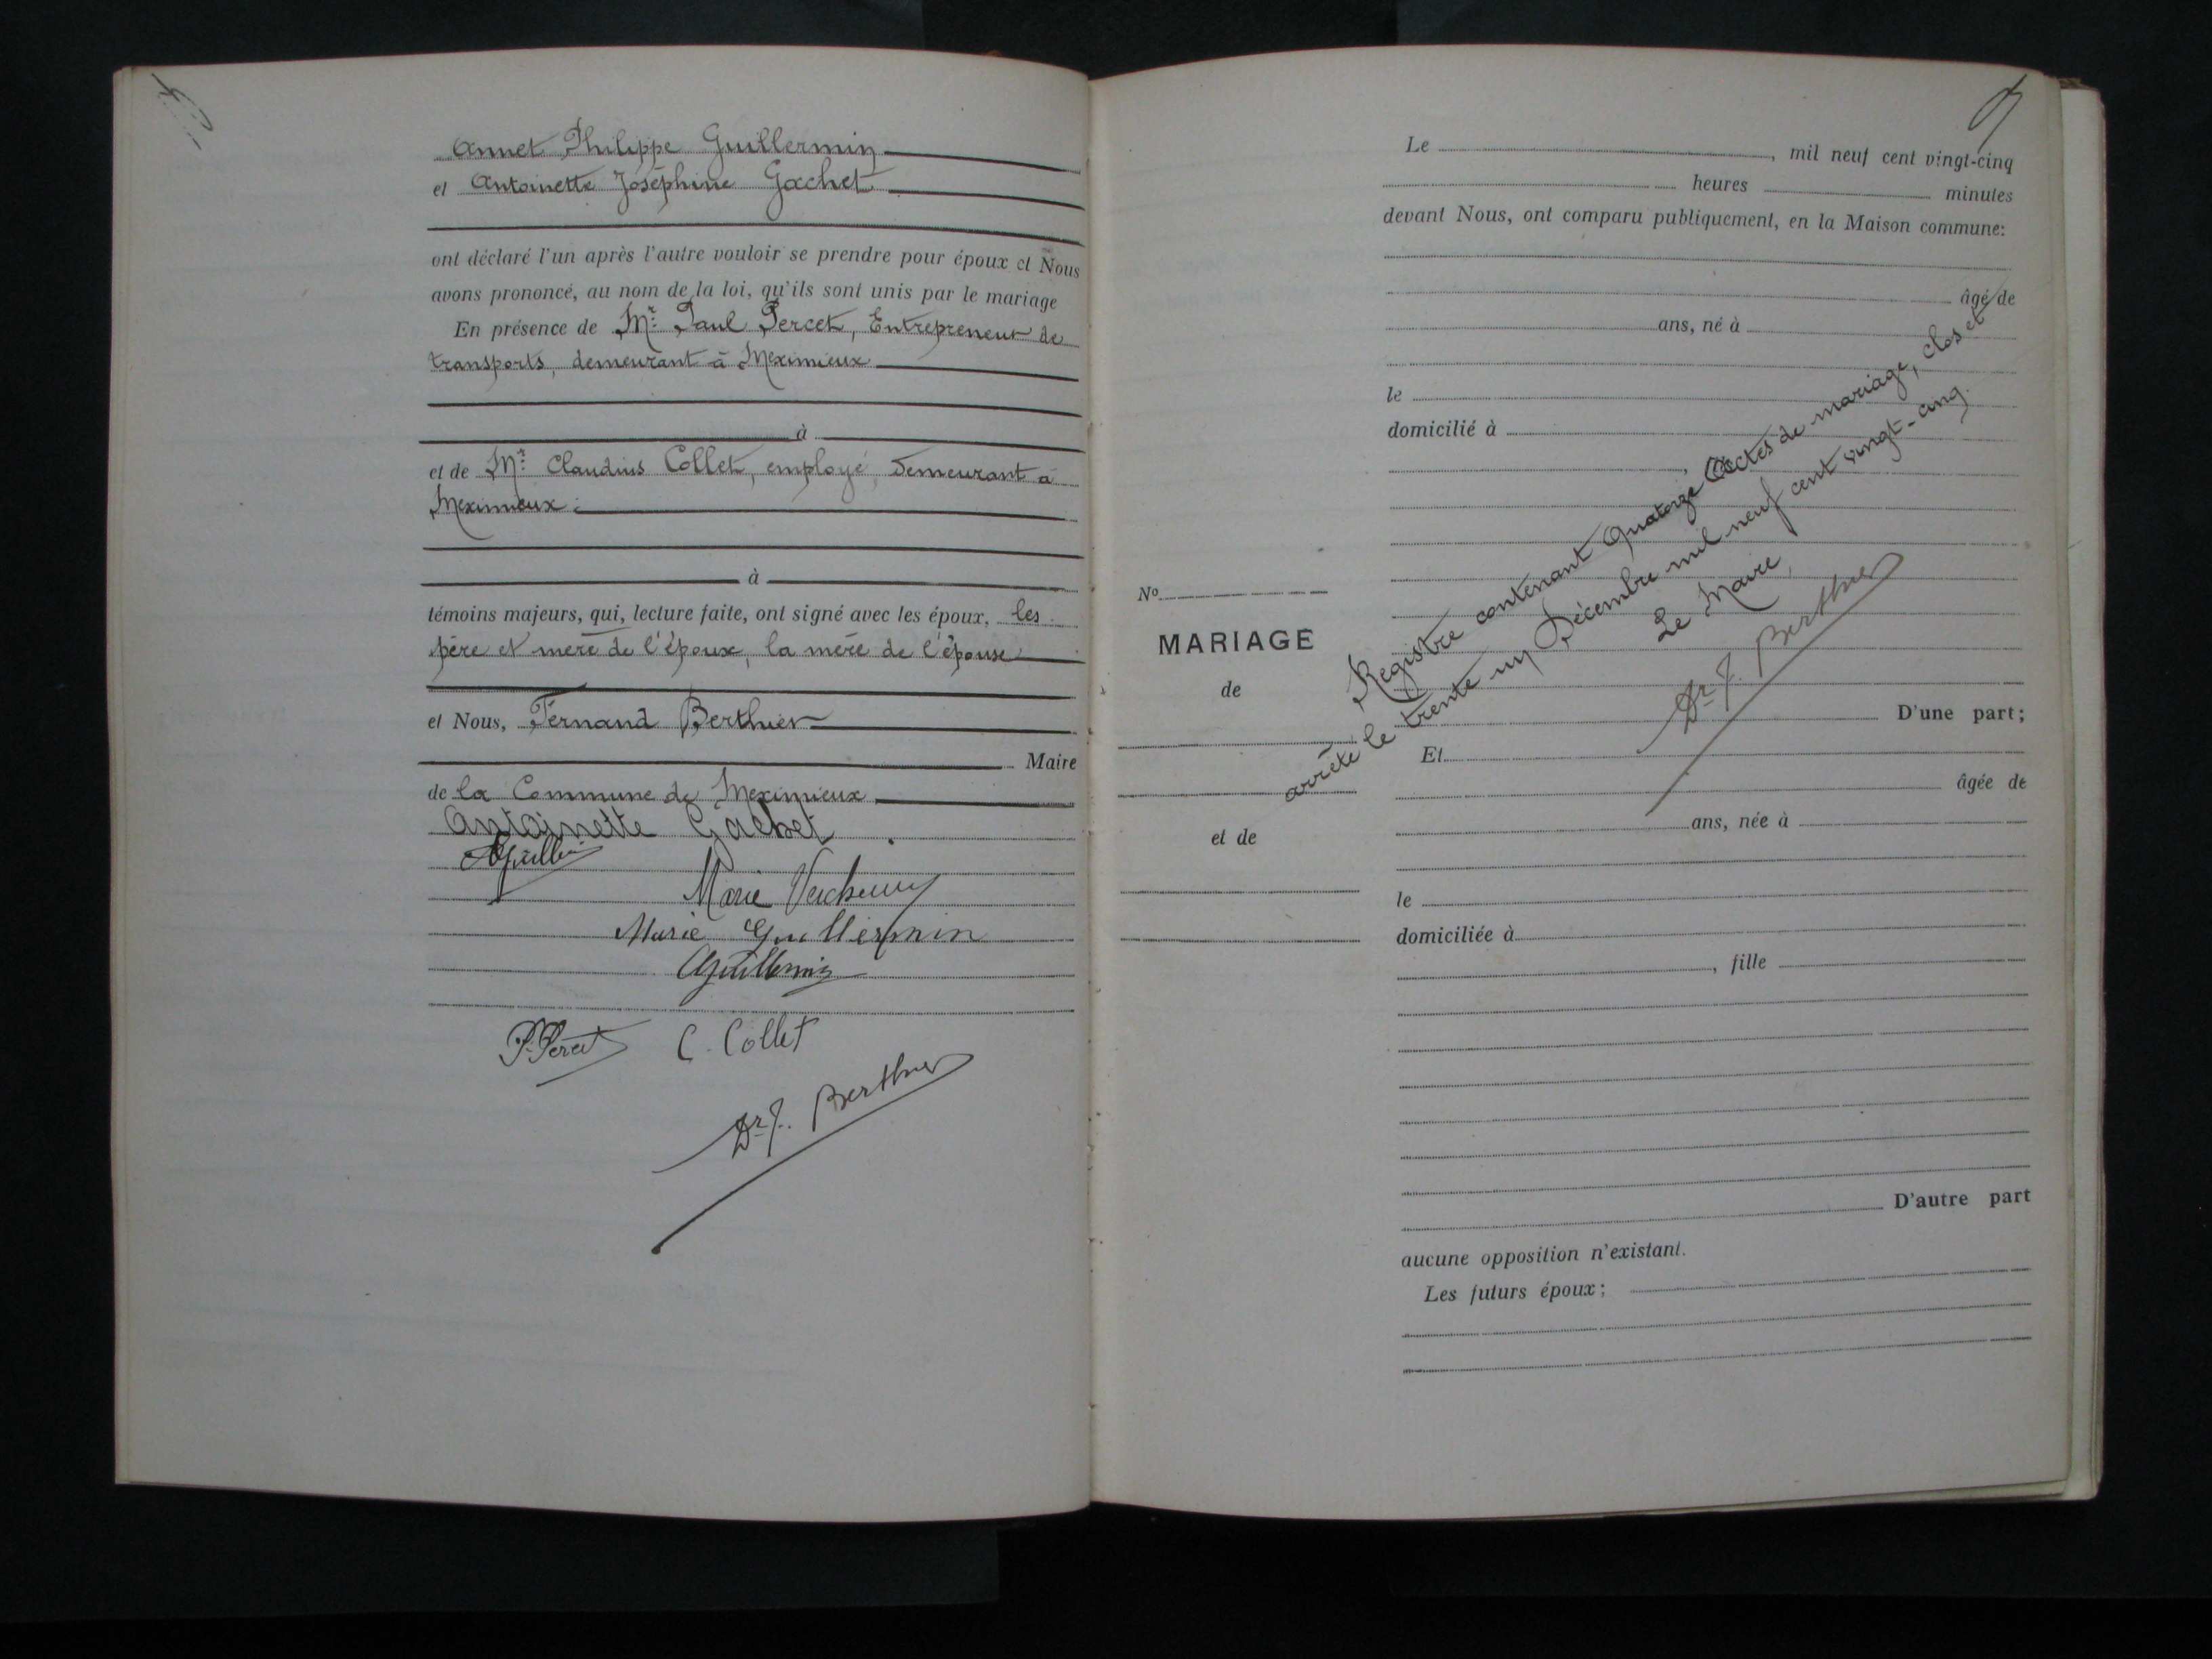 Annet Philippe Guillermin
et Antoinette Joséphine Gachet
ont déclaré l'un après l'autre vouloir se prendre pour époux et Nous
avons prononcé, au nom de la loi, qu'ils sont unis par le mariage
En présence de Mr Paul Percet, Entrepreneur de
transports, demeurant à Meximieux
à
et de Mr Claudius Collet, employé, demeurant à
Meximieux.
à
témoins majeurs, qui, lecture faite, ont signé avec les époux, les
père et mère de l'époux, la mère de l'épouse
et Nous, Fernand Berthier
Maire
de la Commune de Meximieux
Antoinette Gachet
Marie
Marie Guillermin
Guillermin
C. Collet
Dr F. Berthier
Le , mil neuf cent vingt-cinq
heures minutes
devant Nous, ont comparu publiquement, en la Maison commune:
âgé de
ans, né à
le
domicilié à
Registre contenant Quatorze Actes de mariage, clos et
arrêté le trente un Décembre mil neuf cent vingt-cinq.
Le Maire,
Dr F. Berthier
No
MARIAGE
de
et de
D'une part;
Et
âgée de
ans, née à
le
domiciliée à
, fille
D'autre part
aucune opposition n'existant.
Les futurs époux;